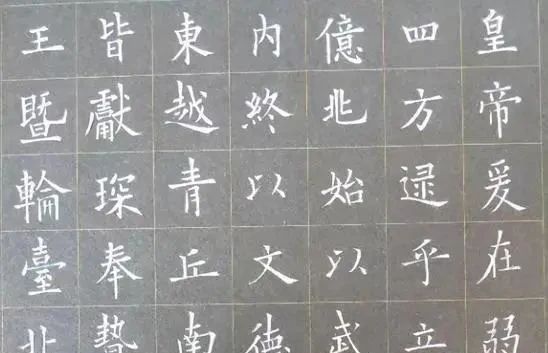 皇帝爰在弱
四方逯乎立
億兆始以武
內終以文德
東越青丘南
皆獻琛奉贄
王暨輪臺北